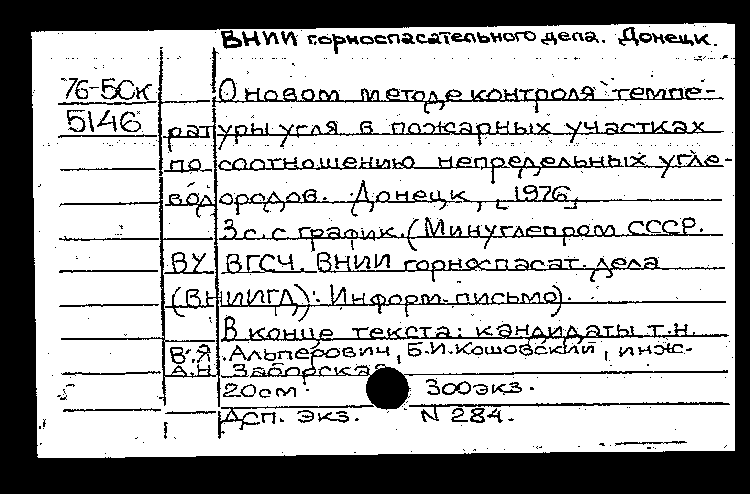 ВНИИ горноспасательного дела. Донецк.
76-5Ск
5146
О новом методе контроля темпе-
ратуры угля в пожарных участках
по соотношению непредельных угле-
водородов. Донецк, [1976]
3 с. с график. (Минуглепром СССР.
ВУ ВГСЧ. ВНИИ горноспасат. дела
(ВНИИГД): Информ. письмо).
В конце текста: кандидаты т.н.
В.Я. Альперович, Б.И. Кошовский, инж.
А.Н. Заборская
20 см. 300 экз.
Дсп. экз. N 284.